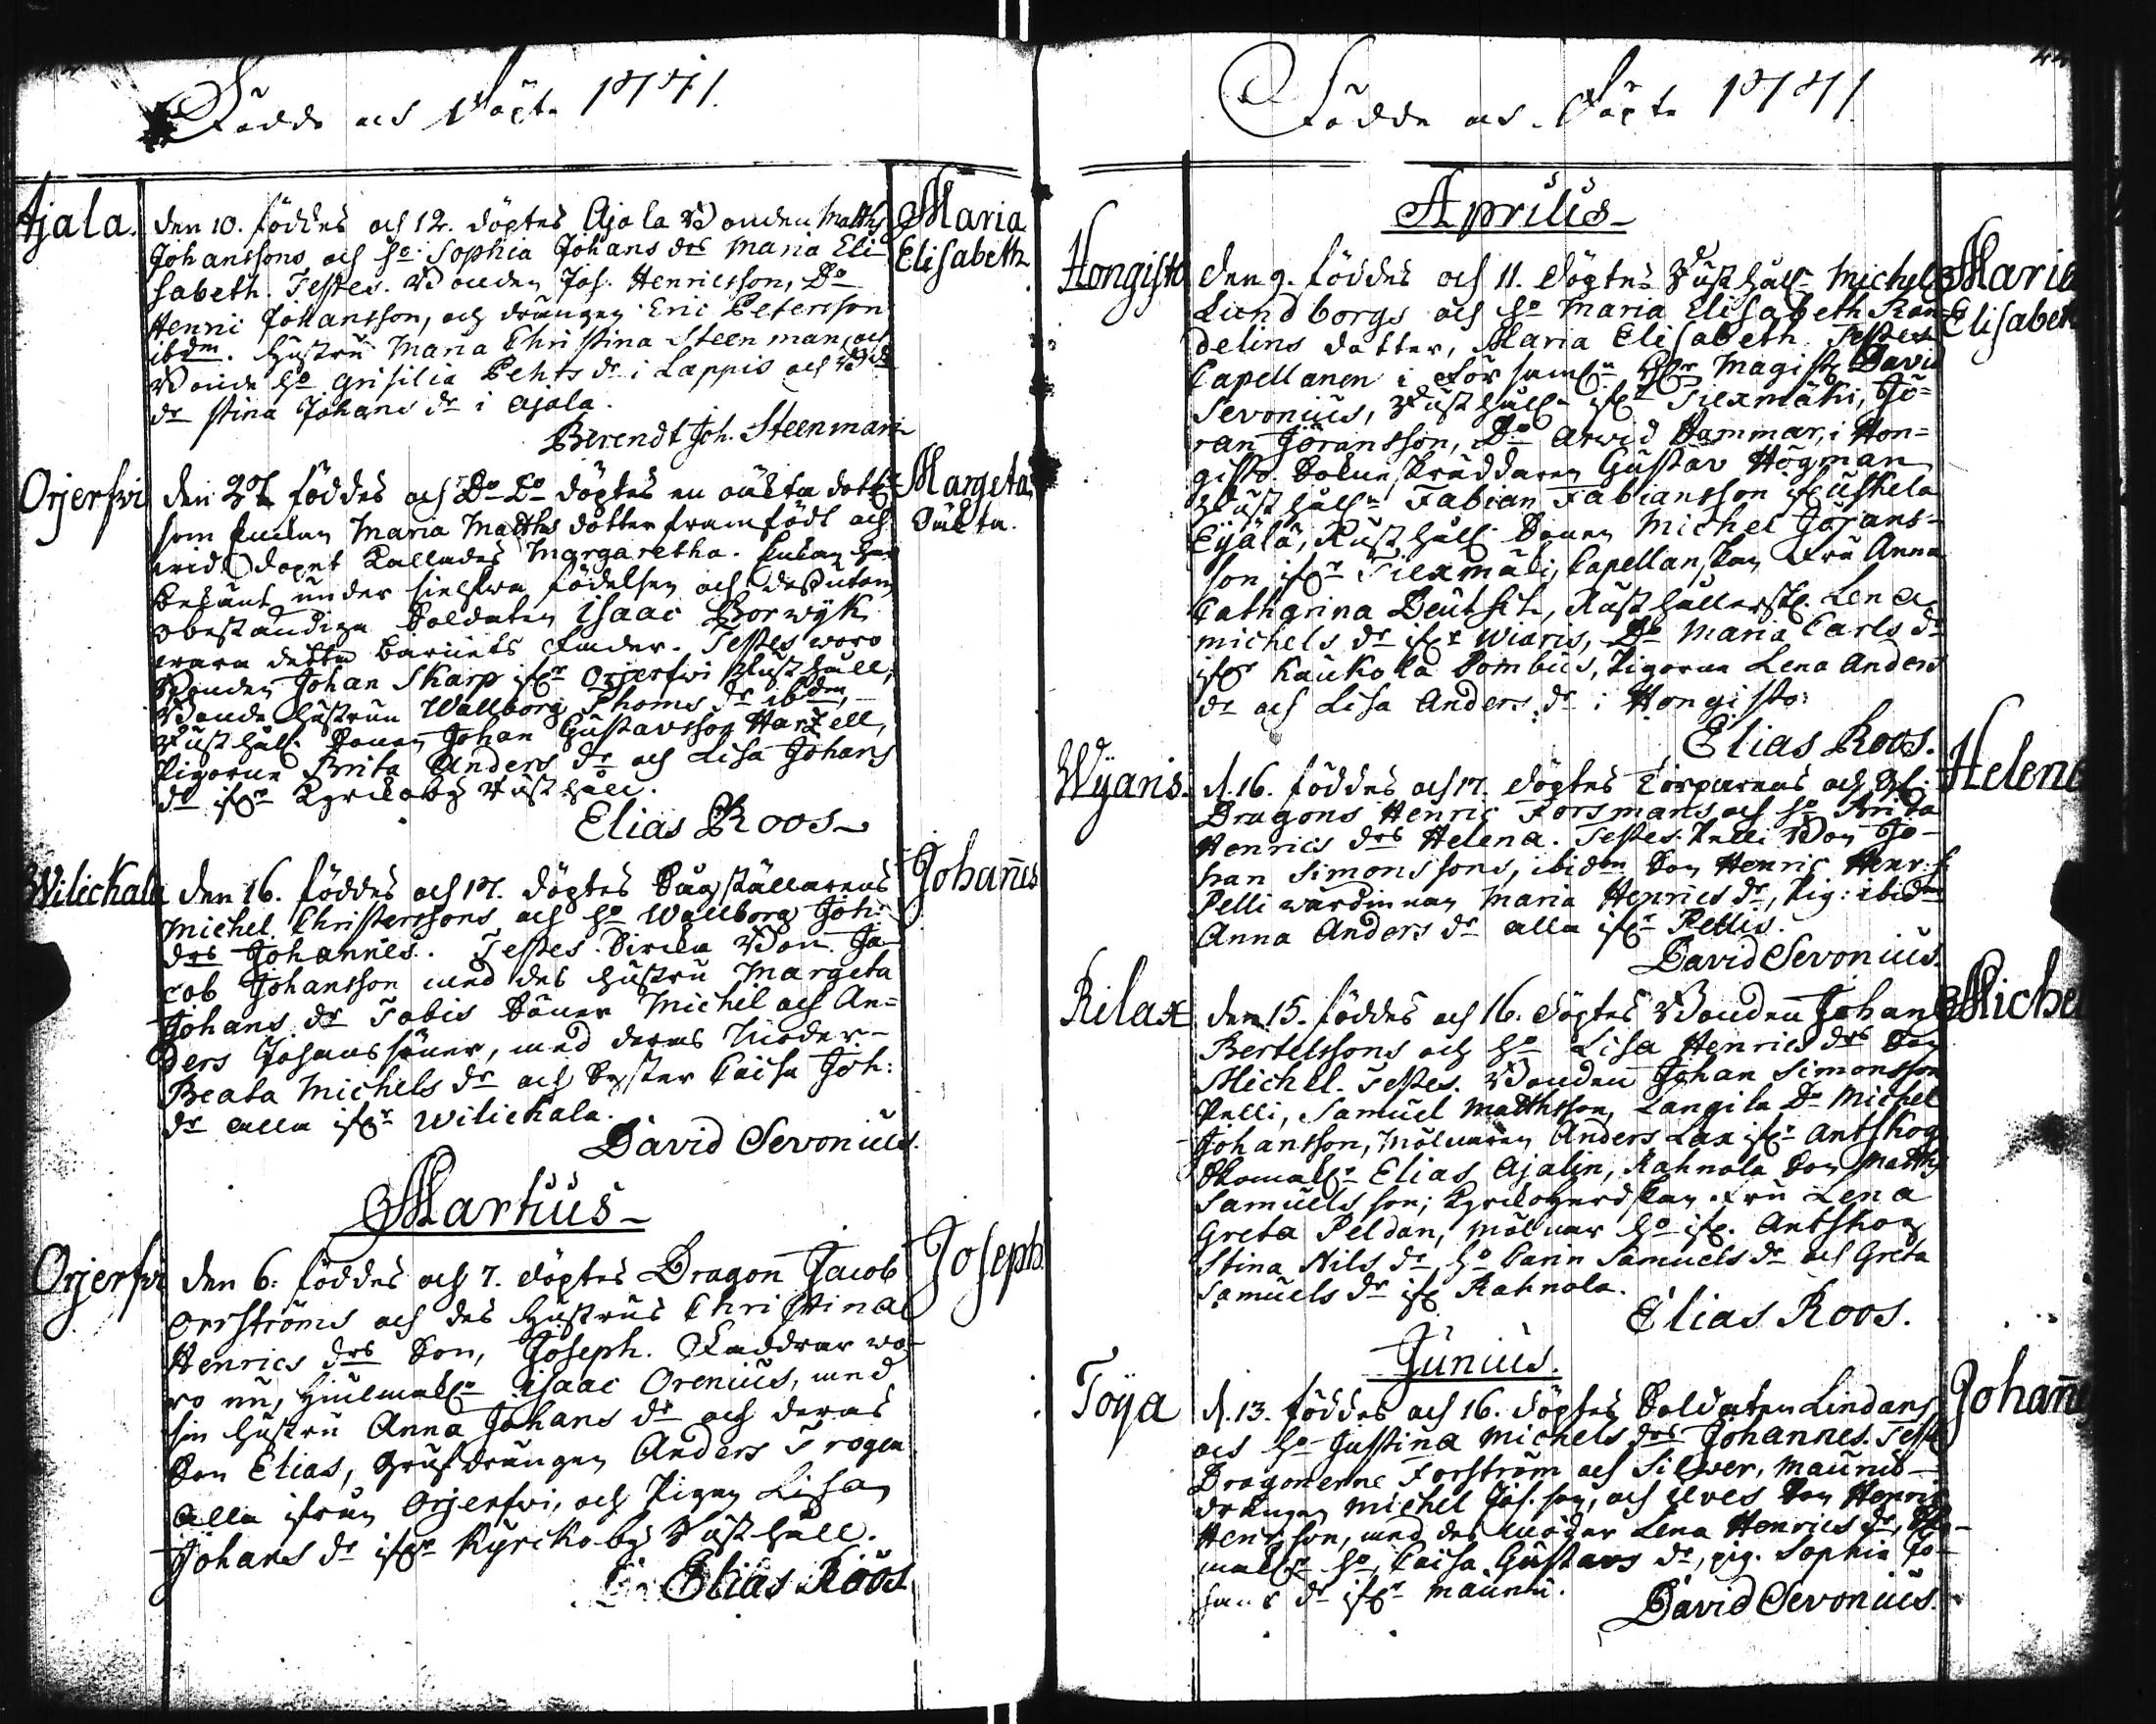 Födde och Döpte 1771.
Ajala.
den 10. föddes och 12. döptes Ajala Bonden Matths
Johanssons och ho: Sophia Johans drs Maria Eli-
sabeth. Testes. Bonden Joh. Henricsson, Do
Henric Johansson, och drängen Eric Petersson
ibdm. Hustru Maria Christina Steenman, och
Bonde ho Grisilia Pehrs dr i Lappis och
dr Stina Johans dr i Ajala.
Berendt Joh. Steenman
Maria
Elisabeth
Orjerfvi
den 27 föddes och Do Do döptes en oäkta dotter
som Maria Matths dotter framfödt och
wid dopet kallades Margaretha.
bekänt under sielfwa födelsen och dessutom
obeständiga Soldaten Isaac Borwyk
wara detta barnets fader. Testes woro
Bonden Johan Skarp ifr Orjerfvi Rusthåll,
Bonde hustrun Wallborg Thoms dr ibdm,
Rusthåll. Sonen Johan Gustavsson Harzell,
Pigorne Brita Anders dr och Lisa Johans
dr ifr Kyrckoby Rusthåll.
Elias Roos
Margeta
Oäkta.
Wilickala
den 16. föddes och 17. döptes
Michel Christerssons och ho Wallborg Joh:
drs Johannes. Testes. Bon Ja-
cob Johansson med des hustru Margeta
Johans dr Tobis Söner Michel och An-
ders Johans söner, med deras moder
Beata Michels dr och Syster Caisa Joh:
dr alla ifr Wilickala.
David Sevonius.
Johannes
Martius
Orjerfvi
den 6. föddes och 7. döptes Dragon Jacob
Orrströms och des Hustrus Christina
Henrics drs Son, Joseph. Faddrar wo-
ro nu, Isaac Orenius, med
sin hustru Anna Johans dr och deras
Son Elias, Grufdrängen Anders Trogen
alla ifrån Orjerfwi, och Pigan Lisa
Johans dr ifr Kyrckoby Rusthåll.
Elias Roos
Joseph.
Födde och Döpte 1771
Aprilis
Hongisto
den 9. föddes och 11. döptes Rusthåll. Michel
Lundborgs och ho Maria Elisabeth Ran-
delins dotter, Maria Elisabeth. Testes
Capellanen i Församl. Magist. David
Sevonius, Rusthåll. ifr Siexmäki, Jö-
ran Göransson, Do Arwid Hammar, i Hon-
gisto. Sokneskräddaren Gustav Högman
Rusthåll. Fabian Fabiansson if Uskela
Eyälä, Rusthåll. Sonen Michel Görans-
son ifr Siexmäki, Capellanskan fru Anna
Catharina Deutsch, Rusthållersk. Lena
Michels dr ifr Wiaris, Do Maria Carls dr
ifr Kaukola Pombus, Pigorne Lena Anders
dr och Lisa Anders dr i Hongisto:
Elias Roos.
Maria
Elisabeth
Wyaris.
d. 16. föddes och 17. döptes Torparens och
Dragons Henric Forsmans och ho Brita
Henrics drs Helena. Testes. Pelli Bon Jo-
han Simonssons, ibidm Son Henric Henr. s.
Pelli wärdinnan Maria Henrics dr, Pig: ibidm
Anna Anders dr alla ifr Pellis.
David Sevonius.
Helena
Kilax
den 15. föddes och 16. döptes Bonden Johan
Bertelssons och ho Lisa Henrics drs Son
Michel. Testes. Bonden Johan Simonsson
Pelli, Samuel Matthsson, Langila Do Michel
Johansson, Mölnaren Anders Lax ifr Antskog
Elias Ajalin, Kahnola Son Matths
Samuelsson; fru Lena
Greta Peldan, Mölnar ho if. Antskog
Stina Nils dr, ho Carin Samuels dr och Greta
Samuels dr if Kahnola.
Elias Roos.
Michel
Junius.
Töya
d. 13. föddes och 16. döptes Soldaten Lindans
och ho Justina Michels drs Johannes. Test
Dragonerne Forström och Silwer, Maunus
drängen Michel Joh. son, och Ilves Son Henric
Henr. son, med des moder Lena Henrics dr,
ho, Caisa Gustavs dr, pig. Sophia Jo-
hans dr ifr Maunu.
David Sevonius.
Johannes